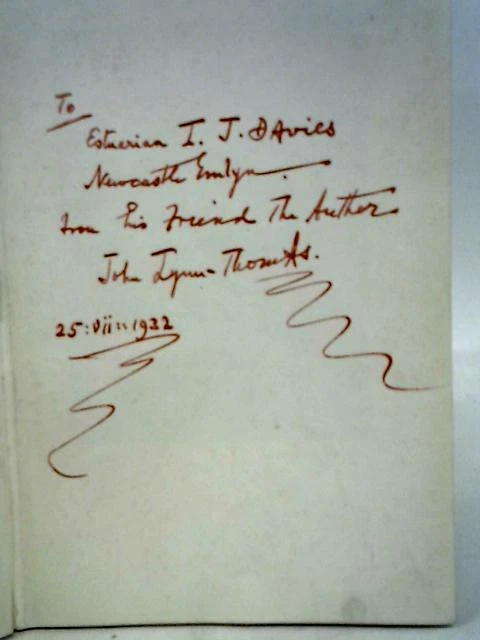 To
Estuerian I. J. Davies
Newcastle Emlyn.
from his Friend The Author
John Lynn-Thomas.
25:Vii:1922